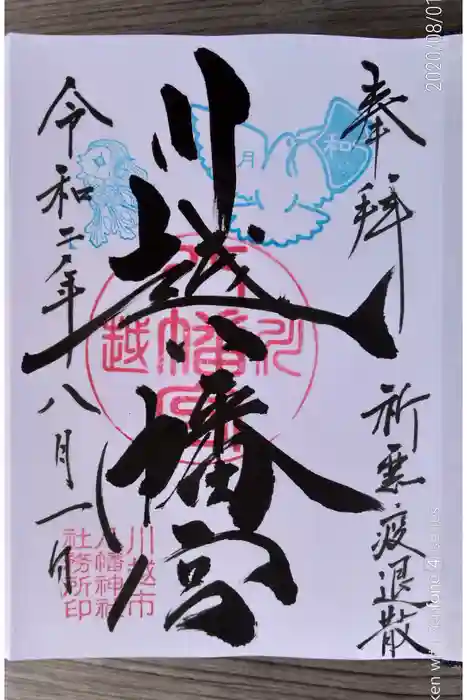 奉拝
祈悪疫退散
和
月
川越八幡宮
川越
八幡宮
川越市
八幡神社
社務所印
令和二年八月一日
2020/08/01